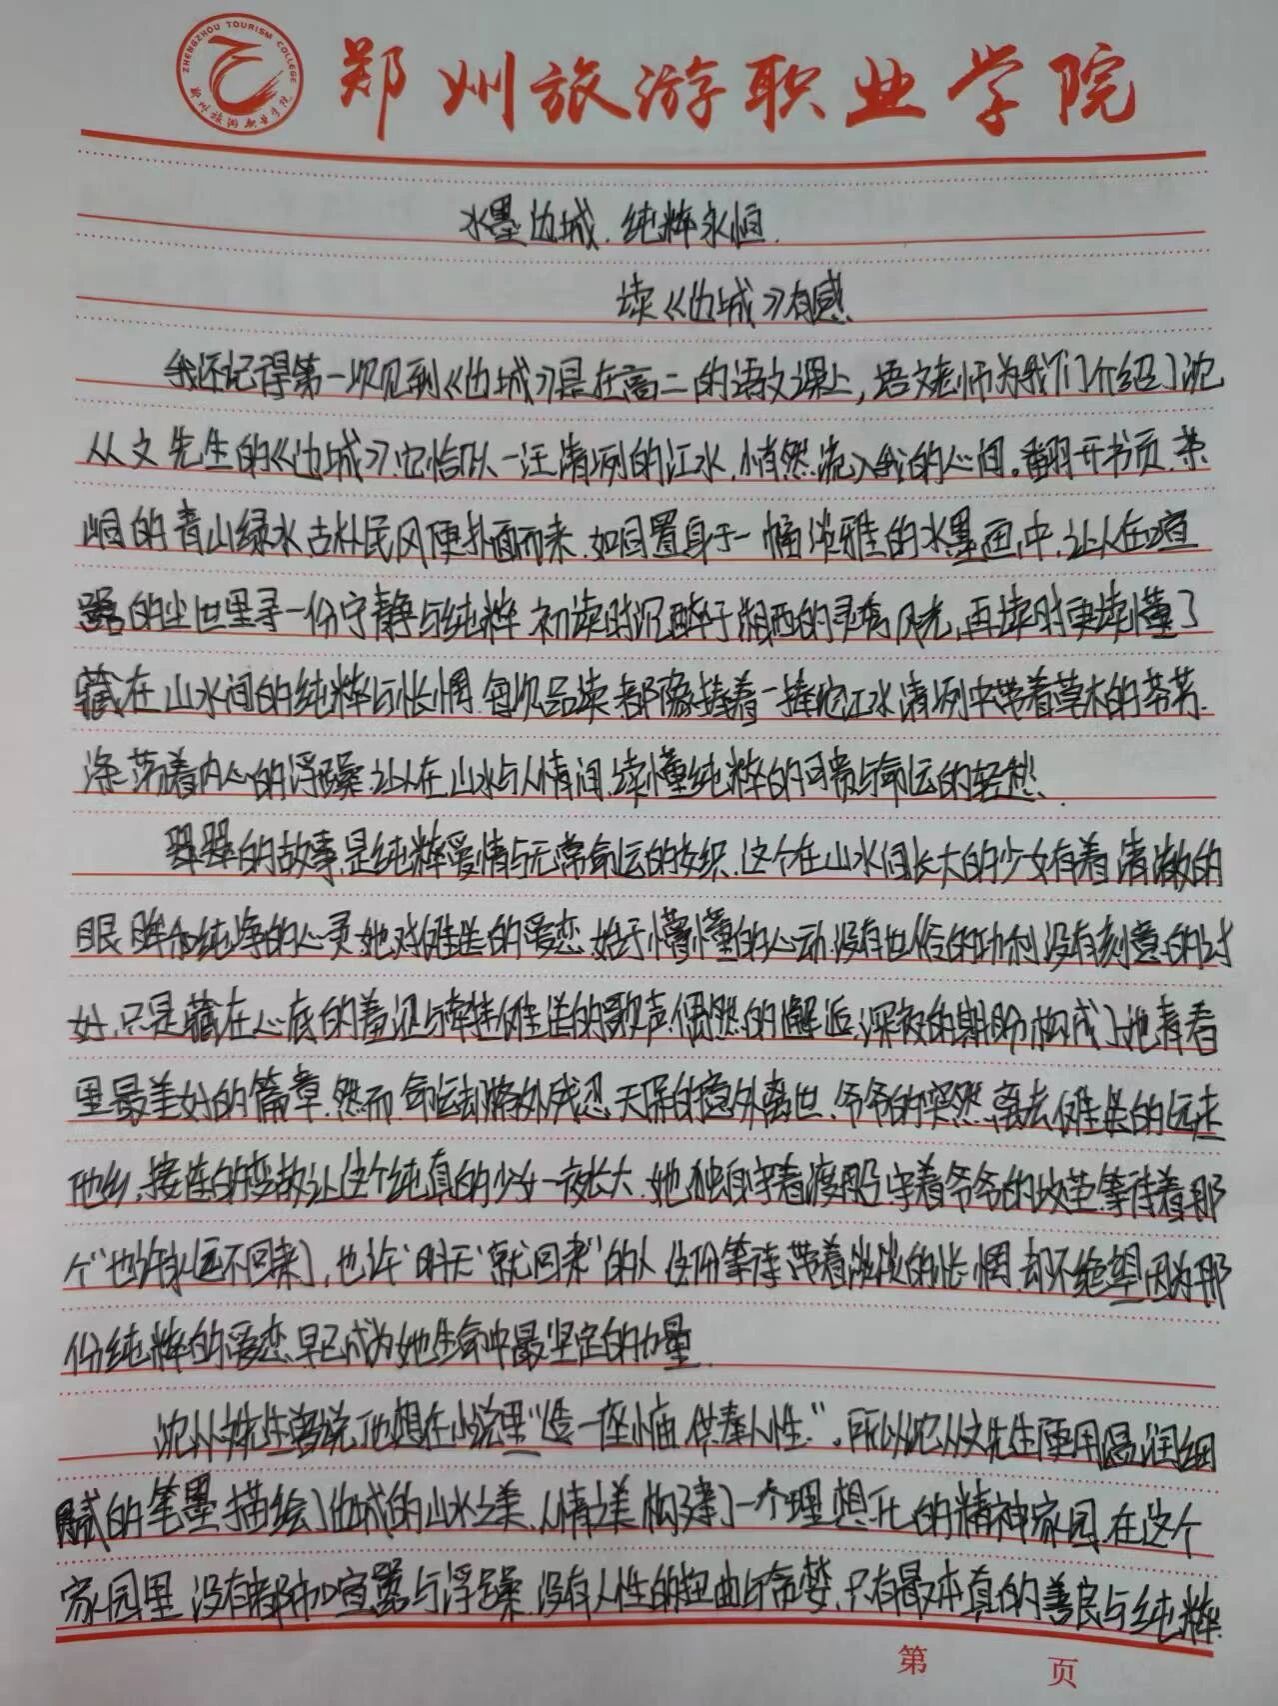 ZHENGZHOU TOURISM COLLEGE
郑州旅游职业学院
郑州旅游职业学院
水墨边城.纯粹永恒.
读《边城》有感
我还记得第一次见到《边城》是在高二的语文课上,语文老师为我们介绍了沈
从文先生的《边城》.它恰似一汪清冽的江水.悄然流入我的心间。翻开书页.茶
峒的青山绿水古朴民风便扑面而来.如同置身于一幅淡雅的水墨画中.让人在喧
嚣的尘世里寻一份宁静与纯粹.初读时沉醉于湘西的灵秀风光,再读时更读懂了
藏在山水间的纯粹与怅惘.每次品读都像捧着一捧沱江水清冽中带着草木的芬芳.
涤荡着内心的浮躁.让人在山水与人情间.读懂纯粹的可贵与命运的轻愁.
翠翠的故事.是纯粹爱情与无常命运的交织.这个在山水间长大的少女有着清澈的
眼眸和纯净的心灵.她对傩送的爱恋.始于懵懂的心动.没有世俗的功利没有刻意的讨
好.只是藏在心底的羞涩与牵挂傩送的歌声.偶然的邂逅.深夜的期盼构成了她青春
里最美好的篇章.然而.命运却格外残忍.天保的意外离世.爷爷的突然离去傩送的远走
他乡.接连的变故让这个纯真的少女一夜长大.她独自守着渡船.守着爷爷的坟茔.等待着那
个"也许永远不回来了,也许'明天'就回来"的人.这份等待.带着淡淡的怅惘.却不绝望.因为那
份纯粹的爱恋.早已成为她生命中最坚定的力量.
沈从文先生曾说,他想在小说里"造一座小庙.供奉人性."。所以沈从文先生便用温润细
腻的笔墨.描绘了边城的山水之美.人情之美.构建了一个理想化的精神家园.在这个
家园里.没有都市的喧嚣与浮躁.没有人性的扭曲与贪婪.只有最本真的善良与纯粹.
第 页